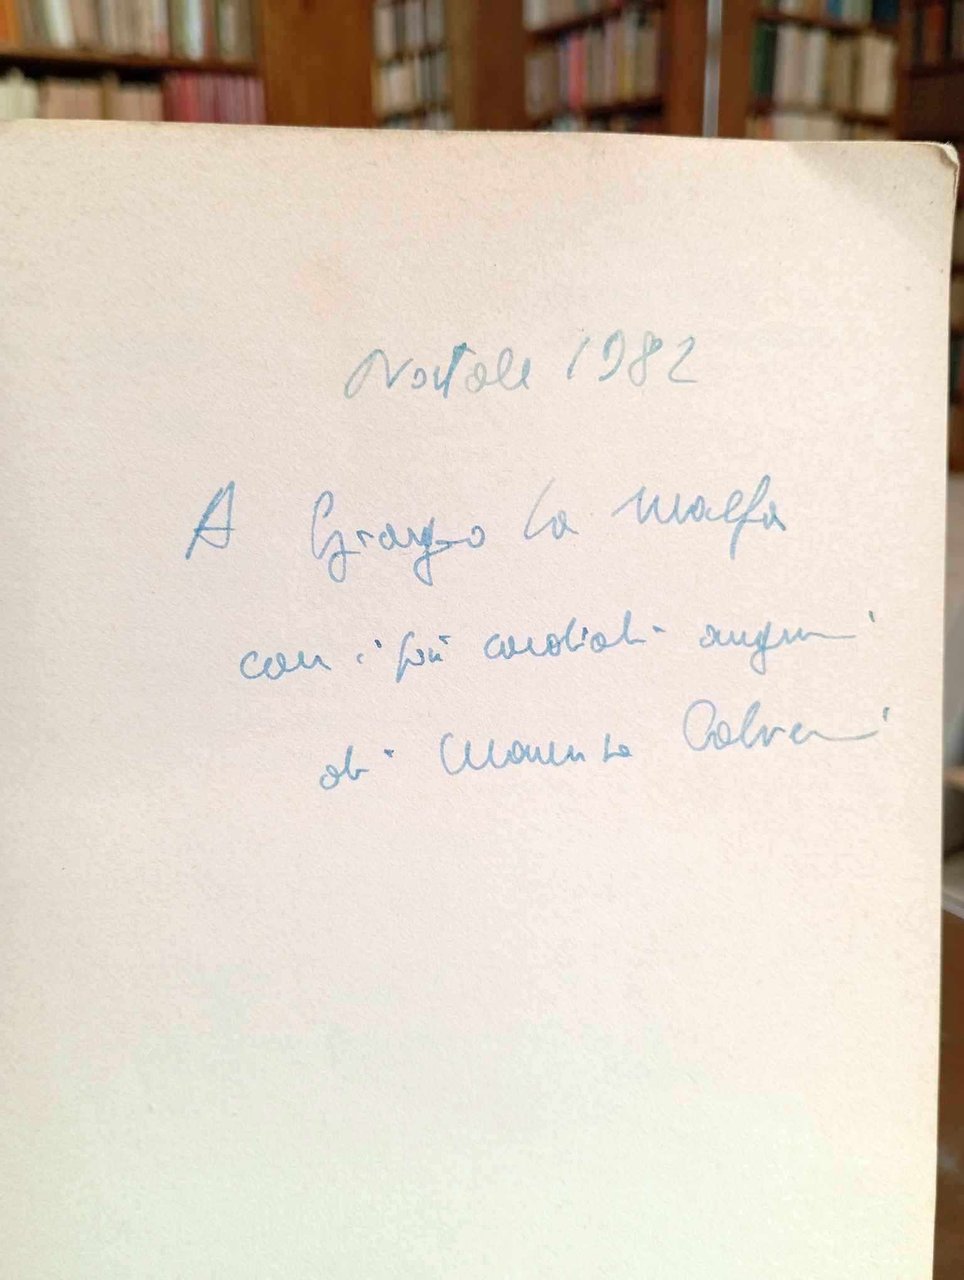 Natale 1982
A Giorgio La Malfa
con i più cordiali auguri
di